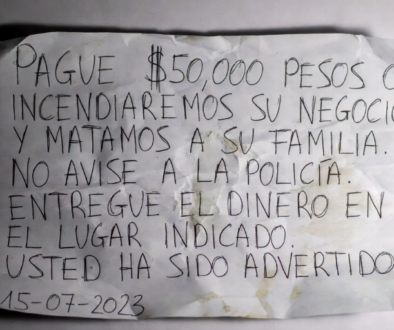 PAGUE $50,000 PESOS O
INCENDIAREMOS SU NEGOCIO
Y MATAMOS A SU FAMILIA.
NO AVISE A LA POLICÍA.
ENTREGUE EL DINERO EN
EL LUGAR INDICADO.
USTED HA SIDO ADVERTIDO
15-07-2023